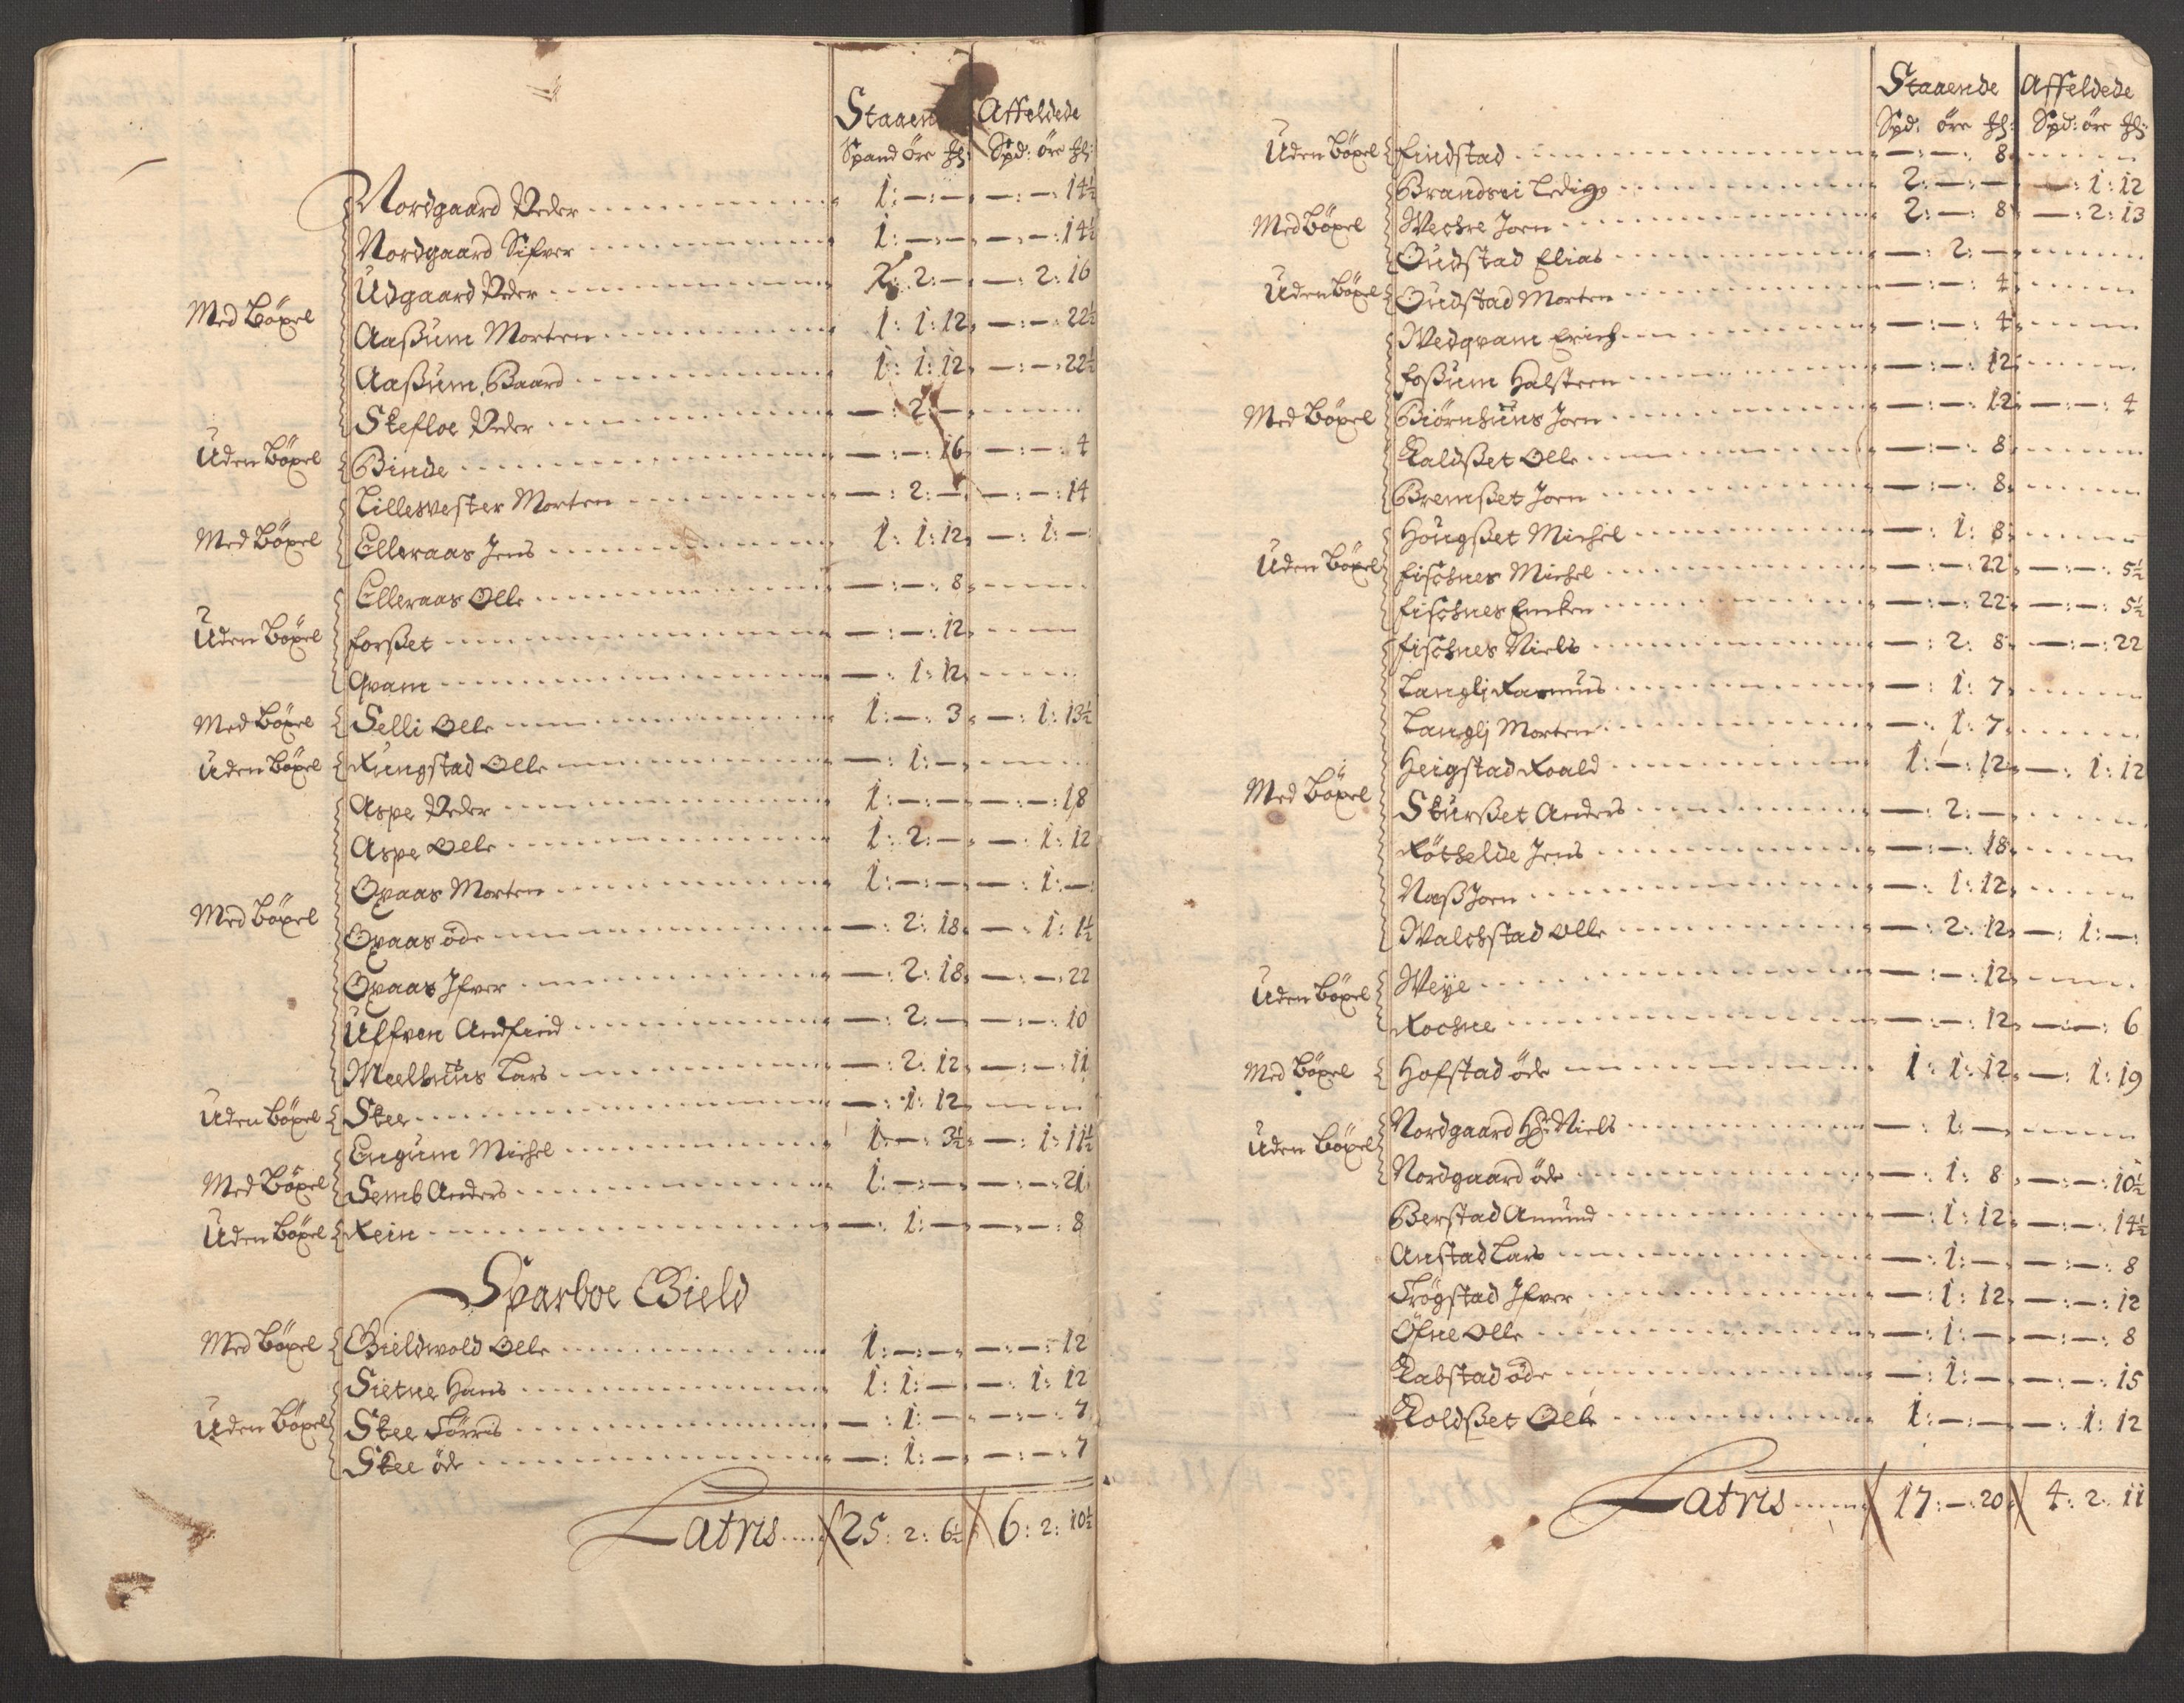 Staaen Affeldede
Spand öre Spd: öre
Nordgaard Peder 1:—:— —:—:14½
Nordgaard Sifver 1:—:— —:—:14½
Udgaard Peder 2:2:— —:2:16
Med Böxel Aaßum Morten 1:1:12 —:—:22½
Aaßum Baard 1:1:12 —:—:22½
Skefloe Peder —:2:—
Uden Böxel Binde —:—:16 —:—:4
Lillesvester Morten —:2:— —:—:14
Med Böxel Elleraas Jens 1:1:12 —:1:—
Elleraas Olle —:—:8
Uden Böxel forßet —:—:12
Qvam —:1:12
Med Böxel Selli Olle 1:—:3 —:1:13½
Uden Böxel Rungstad Olle —:1:—
Aspe Peder 1:—:— —:—:18
Aspe Olle 1:2:— —:1:12
Oxaas Morten 1:—:— —:1:—
Med Böxel Oxaas öde —:2:18 —:1:1½
Oxaas Jfver —:2:18 —:—:22
Ulfven Andfind —:2:— —:—:10
Meelhuus Lars —:2:12 —:—:11
Uden Böxel Skee —:1:12
Engum Michel 1:—:3½ —:1:11½
Med Böxel Semb Anders 1:—:— —:—:21
Uden Böxel Rein —:1:— —:—:8
Sparboe Gield
Med Böxel Gieldwold Olle 1:—:— —:—:12
Sietne Hans 1:1:— —:1:12
Uden Böxel Skee Törris —:1:— —:—:7
Skee öde —:1:— —:—:7
Latris 25:2:6½ 6:2:10½
Staaende Affeldede
Spd: öre Spd: öre
Uden Böxel findstad —:—:8
Brandsei Ledig 2:—:— —:1:12
Med Böxel Wechre Joen 2:—:8 —:2:13
Oudstad Elias —:2:—
Uden Böxel Oudstad Morten —:—:4
Wedqvam Erich —:—:4
foßum Halsteen —:—:12
Med Böxel Biörnhuus Joen —:—:12 —:—:4
Kaldßet Olle —:—:8
Bremßet Joen —:—:8
Hougßet Michel —:1:8
Uden Böxel fischnes Michel —:—:22 —:—:5½
fischnes Encken —:—:22 —:—:5½
fischnes Niels —:2:8 —:—:22
Langlj Rasmus —:1:7
Langlj Morten —:1:7
Heigstad Roald 1:—:12 —:1:12
Med Böxel Skurßet Anders —:2:—
Röthelde Jens —:—:18
Næß Joen —:1:12
Walchstad Olle —:2:12 —:1:—
Uden Böxel Weye —:—:12
Rochne —:—:12 —:—:6
Med Böxel Hofstad öde 1:1:12 —:1:19
Uden Böxel Nordgaard Hr: Niels —:1:—
Nordgaard öde —:1:8 —:—:10½
Berstad Amund —:1:12 —:—:14½
Anstad Lars —:1:— —:—:8
Trögstad Jfver —:1:12 —:—:12
Öfne Olle —:1:— —:—:8
Kabstad öde —:1:— —:—:15
Koldßet Olle 1:—:— —:1:12
Latris 17:—:20 4:2:11